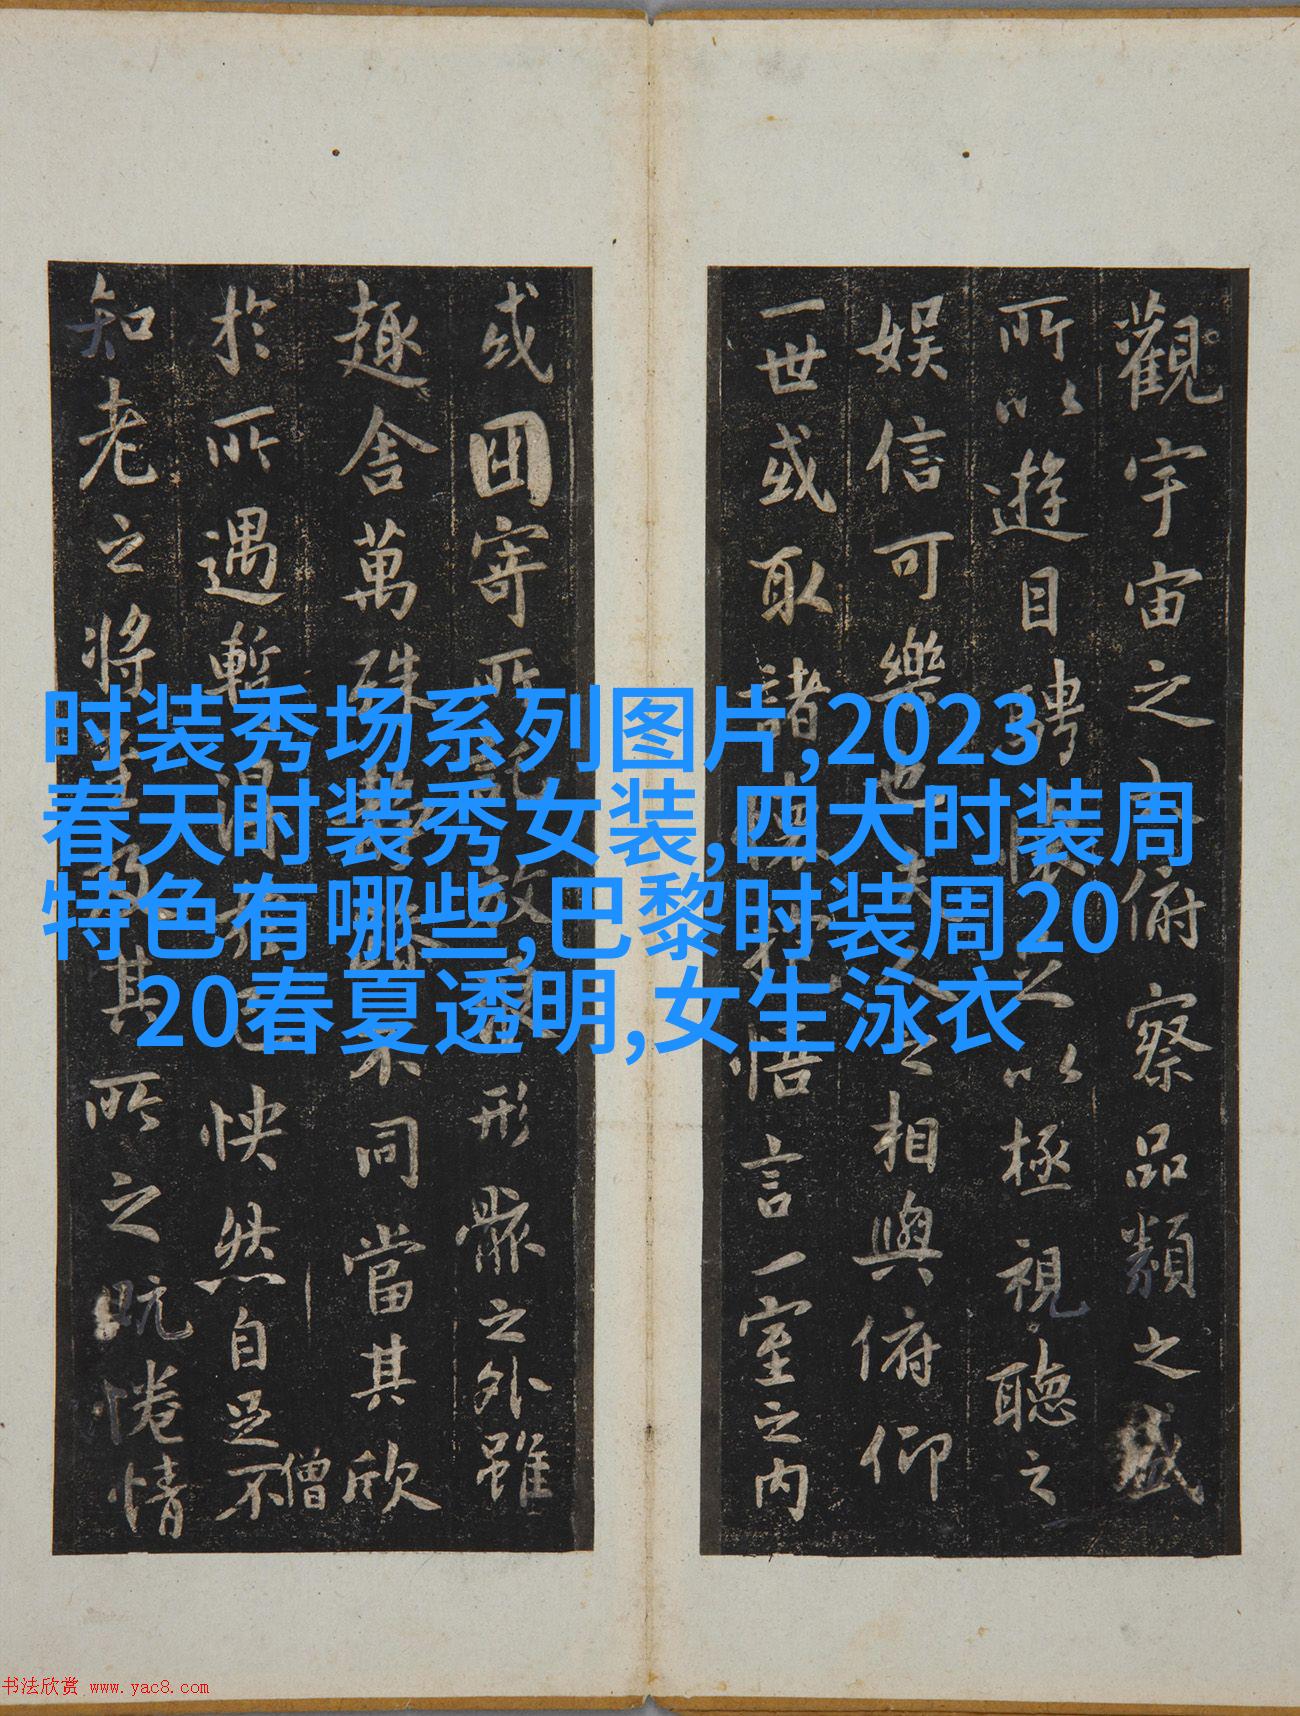 觀宇宙之大俯察品類之盛
所以遊目騁懷足以極視聽之
娛信可樂也夫人之相與俯仰
一世或取諸懷抱悟言一室之內
或因寄所託放浪形骸之外雖
趣舍萬殊靜躁不同當其欣
僧
於所遇暫得於己快然自足不
知老之將至及其所之既惓情
时装秀场系列图片,2023
春天时装秀女装,四大时装周
特色有哪些,巴黎时装周20
20春夏透明,女生泳衣
书法欣赏 www.yac8.com